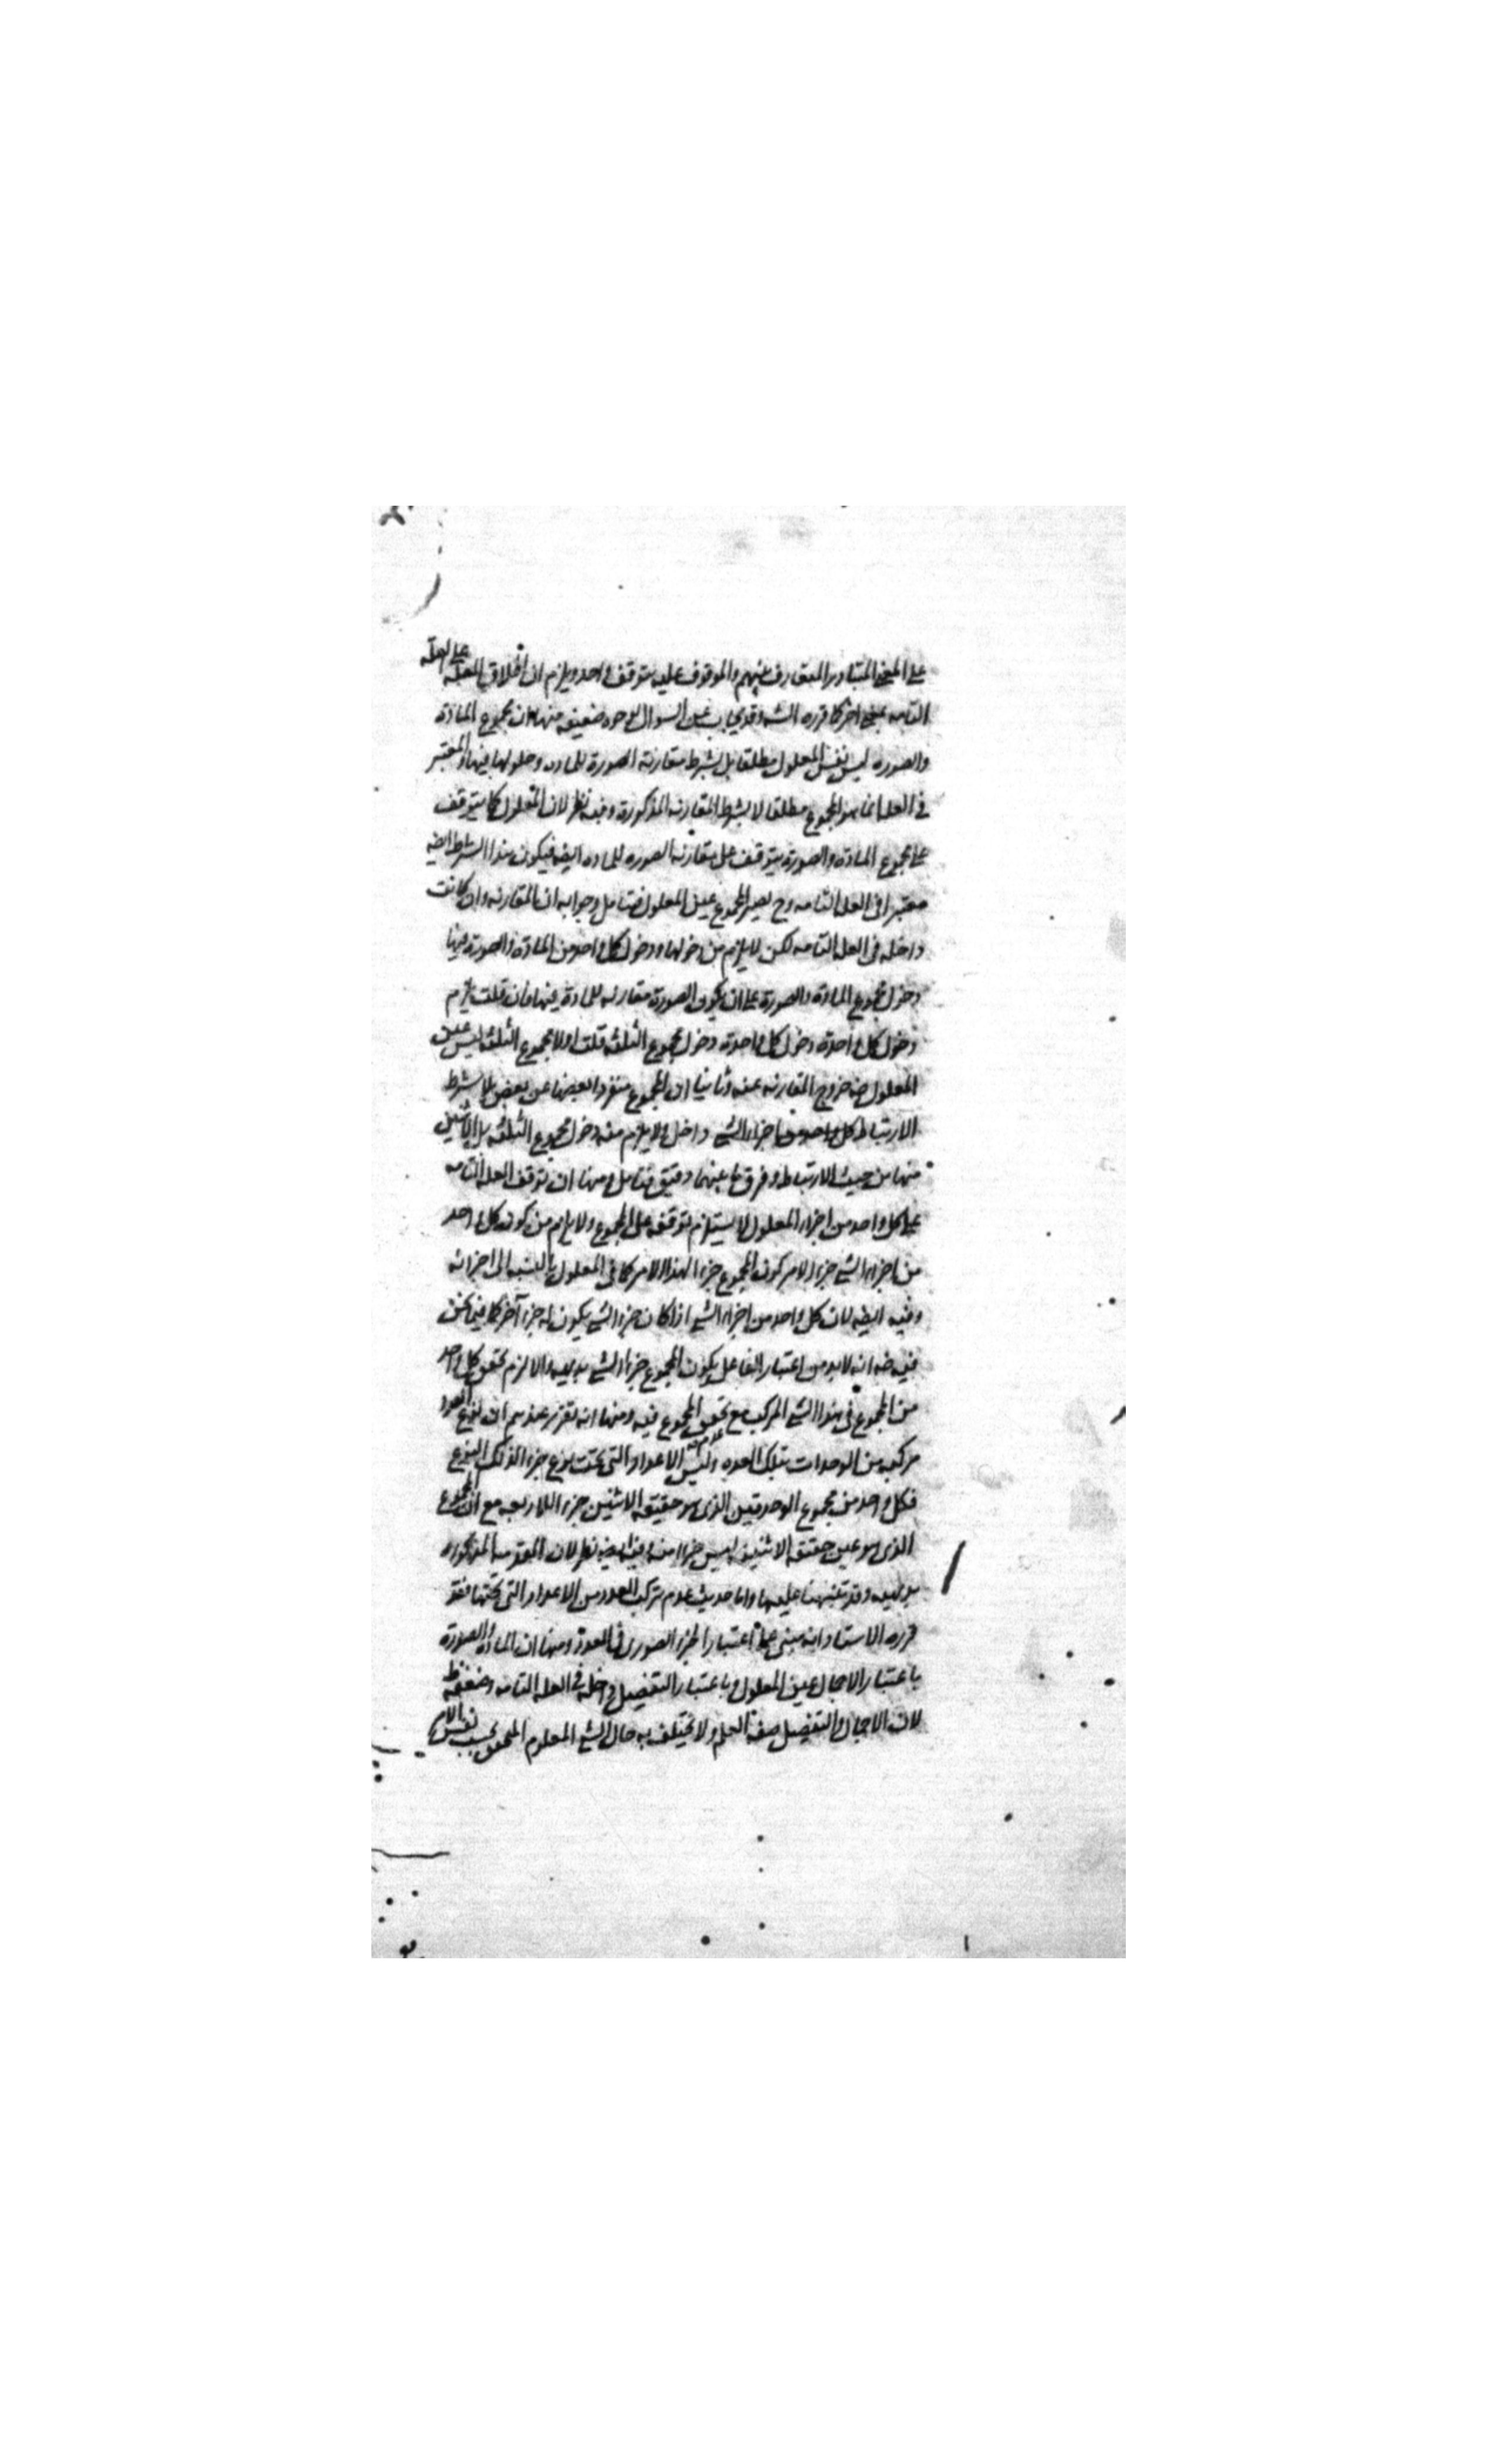 على المعنى المتبادر المتعارف بينهم والموقوف عليه متوقف واحد ويلزم ان اطلاق العلة على العلة
التامه بمعنى اخر كما قرره الشه وقد يجاب عن السوال بوجوه ضعيفه منها ان مجموع المادة
والصوره ليس نفس المعلول مطلقا بل بشرط مقارنة الصورة للماده وحلولها فيها والمعتبر
في العله انما هو المجموع مطلقا لا بشرط المقارنه المذكورة وفيه نظر لان المعلول كما يتوقف
على مجموع المادة والصورة يتوقف على مقارنه الصوره للماده ايضه فيكون هذا الشرط ايضه
معتبرا في العله التامه وح يصير المجموع عين المعلول فتامل وجوابه ان المقارنه وان كانت
داخله في العله التامه لكن لا يلزم من دخولها ودخول كل واحد من المادة والصورة فيها
دخول مجموع المادة والصورة على ان يكون الصورة مقارنه للمادة فيها فان قلت يلزم
دخول كل واحدة دخول كل واحدة دخول مجموع الثلثه قلت اولا مجموع الثلثه ليس عين
المعلول ضه خروج المقارنه عنه وثانيا ان المجموع منفردا بعضها عن بعض بلا شرط
الارتباط كل واحد من اجزاء الشي داخل ولا يلزم منه دخول مجموع الثلثه بل الاثنين
منها من حيث الارتباط وفرق ما بينهما دقيق فتامل ومنها ان توقف العله التامه
على كل واحد من اجزاء المعلول لا يستلزم توقفه على المجموع ولا يلزم من كون كل واحد
من اجزاء الشي جزءا لامر كون المجموع جزءا لهذا الامر كما في المعلول بالنسبه الى اجزائه
وفيه ايضه لان كل واحد من اجزاء الشي اذا كان جزء الشي يكون له جزء آخر كما فيما نحن
فيه ضه انه لا بد من اعتبار الفاعل ويكون المجموع جزءا لشي بديهيه والا لزم تحقق كل واحد
من المجموع في هذا الشي المركب مع تحقق المجموع فيه ومنها انه تقرر عندهم ان نوع العدد
مركب من الوحدات بتلك العده وليس الاعداد التي تحت نوع جزءا لذلك النوع
فكل واحد من مجموع الوحدتين الذي هو حقيقه الاثنين جزء للاربعه مع ان المجموع
الذي هو عين حقيقه الاثنين ليس جزءا منه وفيه ايضه نظر لان المقدمه المذكوره
بديهيه وقد تنبهنا عليها واما حديث عدم تركب العدد من الاعداد التي تحتها فقد
قرره الاستاد انه مبنى على اعتبار الجزء الصورى في العدد ومنها ان المادة والصورة
باعتبار الاجمال عين المعلول وباعتبار التفصيل داخله في العله التامه وضعفه ظ
لان الاجمال والتفصيل صفة العلم ولا يختلف به حال الشي المعلوم المحقق بحسب نفس الامر